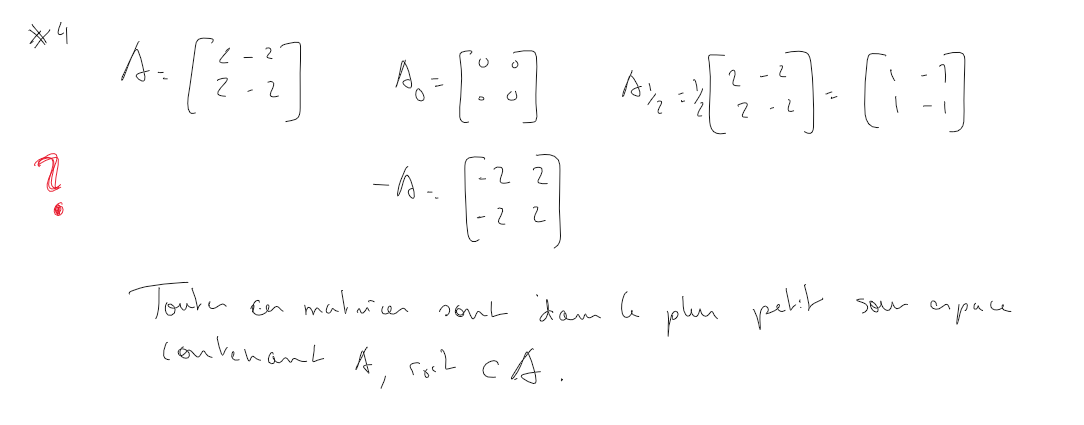 *4
A = [2 -2; 2 -2] A₀ = [0 0; 0 0] A½ = ½ [2 -2; 2 -2] = [1 -1; 1 -1]
?
-A = [-2 2; -2 2]
Toutes ces matrices sont dans le plus petit sous espace
contenant A, soit cA.